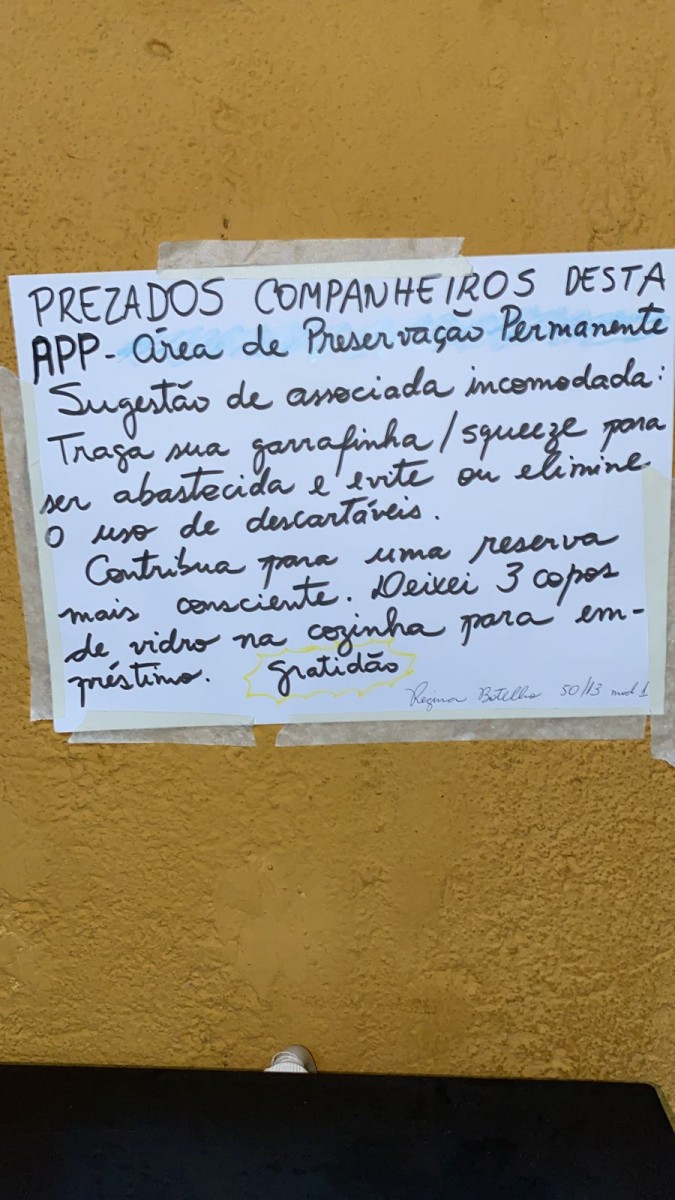 PREZADOS COMPANHEIROS DESTA
APP - Área de Preservação Permanente
Sugestão de associada incomodada:
Traga sua garrafinha/squeeze para
ser abastecida e evite ou elimine
o uso de descartáveis.
Contribua para uma reserva
mais consciente. Deixei 3 copos
de vidro na cozinha para em-
préstimo. gratidão
Regina Botelho 50/13 mod 1